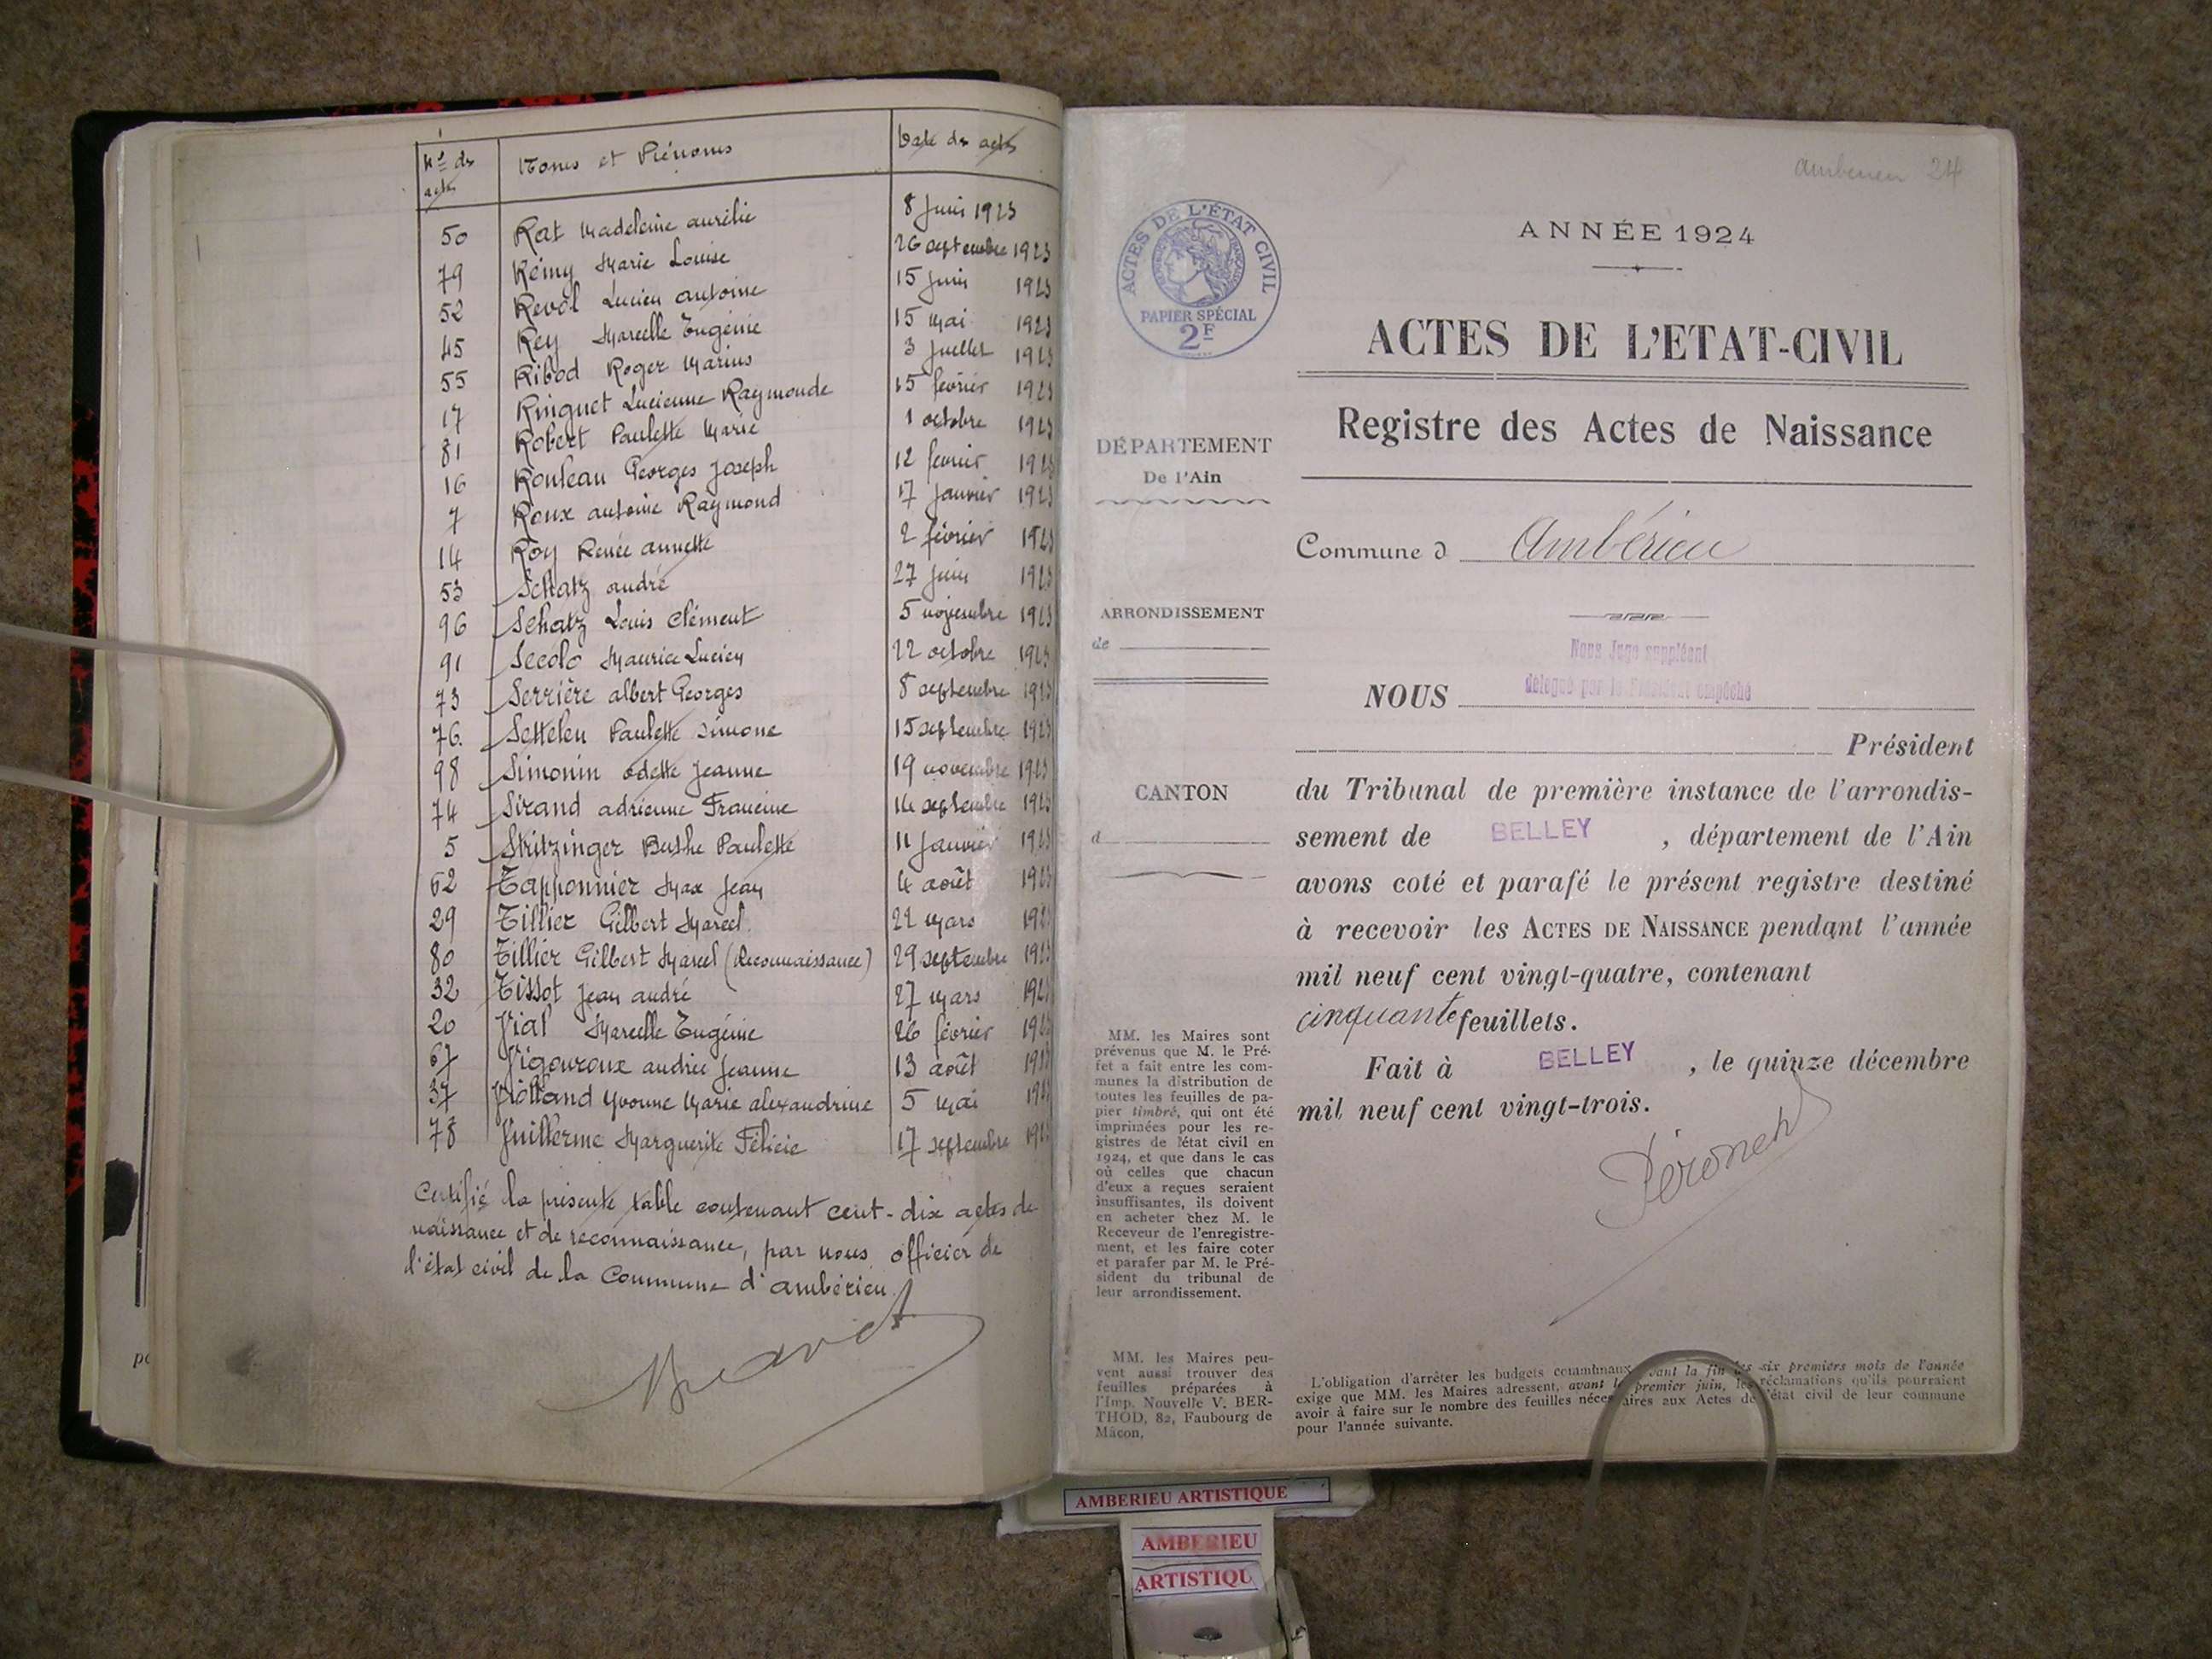 Nos des actes Noms et Prénoms Date des actes
50 Rat Madeleine aurélie 8 Juin 1923
79 Rémy Marie Louise 26 septembre 1923
52 Revol Lucien antoine 15 Juin 1923
45 Rey Marcelle Eugénie 15 Mai 1923
55 Ribod Roger Marius 3 Juillet 1923
17 Ringuet Lucienne Raymonde 15 février 1923
81 Robert Paulette Marie 1 octobre 1923
16 Rouleau Georges Joseph 12 février 1923
7 Roux antoine Raymond 17 Janvier 1923
14 Roy Renée annette 2 février 1923
53 Schatz andré 27 Juin 1923
96 Schatz Louis Clément 5 novembre 1923
91 Secolo Maurice Lucien 22 octobre 1923
73 Serrière albert Georges 8 septembre 1923
76. Settelen Paulette Simone 15 septembre 1923
98 Simonin odette Jeanne 19 novembre 1923
74 Sirand adrienne Francine 14 septembre 1923
5 Stritzinger Berthe Paulette 11 Janvier 1923
62 Tapponnier Max Jean 4 août 1923
29 Tillier Gilbert Marcel. 22 Mars 192
80 Tillier Gilbert Marcel (Reconnaissance) 29 septembre 192
32 Tissot Jean andré 27 Mars 192
20 Vial Marcelle Eugénie 26 février 192
67 Vigouroux andrée Jeanne 13 août 192
37 Violland Yvonne Marie alexandrine 5 Mai 192
78 Vuillerme Marguerite Félicie 17 septembre 192
Certifié la présente table contenant cent-dix actes de
naissance et de reconnaissance, par nous, officier de
l'état civil de la Commune d'ambérieu.
ambérieu 24
ANNÉE 1924
ACTES DE L'ÉTAT CIVIL
RÉPUBLIQUE FRANÇAISE
PAPIER SPÉCIAL
2F
ACTES DE L'ETAT-CIVIL
Registre des Actes de Naissance
DÉPARTEMENT
De l'Ain
Commune d Ambérieu
ARRONDISSEMENT
de
CANTON
d
Nous Juge suppléant
délégué par le Président empêché
NOUS
Président
du Tribunal de première instance de l'arrondis-
sement de BELLEY , département de l'Ain
avons coté et parafé le présent registre destiné
à recevoir les ACTES DE NAISSANCE pendant l'année
mil neuf cent vingt-quatre, contenant
cinquante feuillets.
Fait à BELLEY , le quinze décembre
mil neuf cent vingt-trois.
MM. les Maires sont
prévenus que M. le Pré-
fet a fait entre les com-
munes la distribution de
toutes les feuilles de pa-
pier timbré, qui ont été
imprimées pour les re-
gistres de l'état civil en
1924, et que dans le cas
où celles que chacun
d'eux a reçues seraient
insuffisantes, ils doivent
en acheter chez M. le
Receveur de l'enregistre-
ment, et les faire coter
et parafer par M. le Pré-
sident du tribunal de
leur arrondissement.
MM. les Maires peu-
vent aussi trouver des
feuilles préparées à
l'Imp. Nouvelle V. BER-
THOD, 82, Faubourg de
Mâcon,
L'obligation d'arrêter les budgets communaux avant la fin des six premiers mois de l'année
exige que MM. les Maires adressent, avant le premier juin, les réclamations qu'ils pourraient
avoir à faire sur le nombre des feuilles nécessaires aux Actes de l'état civil de leur commune
pour l'année suivante.
AMBERIEU ARTISTIQUE
AMBERIEU
ARTISTIQU